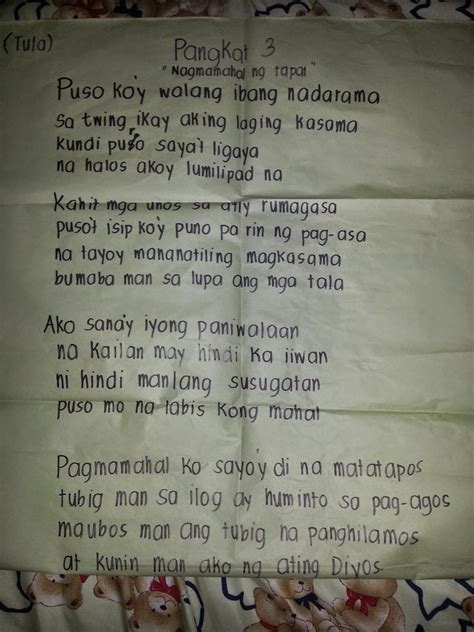 (Tula)
Pangkat 3
"Nagmamahal ng tapat"
Puso ko'y walang ibang nadarama
sa twing ikay aking laging kasama
kundi puro saya't ligaya
na halos akoy lumilipad na
Kahit mga unos sa ati'y rumagasa
puso't isip ko'y puno pa rin ng pag-asa
na tayoy mananatiling magkasama
bumaba man sa lupa ang mga tala
Ako sana'y iyong paniwalaan
na kailan may hindi ka iiwan
ni hindi manlang susugatan
puso mo na labis kong mahal
Pagmamahal ko sayo'y di na matatapos
tubig man sa ilog ay huminto sa pag-agos
maubos man ang tubig na panghilamos
at kunin man ako ng ating Diyos.